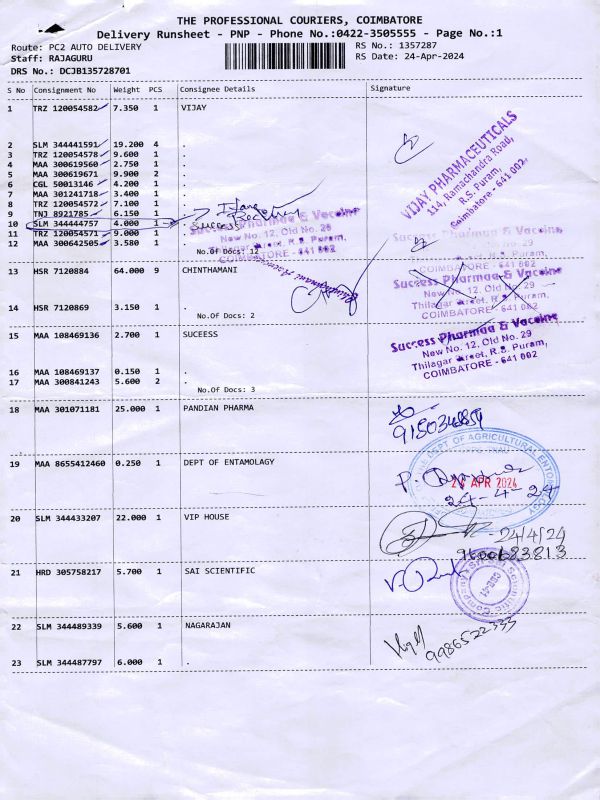 THE PROFESSIONAL COURIERS, COIMBATORE
Delivery Runsheet - PNP - Phone No.:0422-3505555 - Page No.:1
Route: PC2 AUTO DELIVERY RS No.: 1357287
Staff: RAJAGURU RS Date: 24-Apr-2024
DRS No.: DCJB135728701
S No Consignment No Weight PCS Consignee Details Signature
1 TRZ 120054582 7.350 1 VIJAY
2 SLM 344441591 19.200 4 .
3 TRZ 120054578 9.600 1 .
4 MAA 300619560 2.750 1 .
5 MAA 300619671 9.900 2 .
6 CGL 50013146 4.200 1 .
7 MAA 301241718 3.400 1 .
8 TRZ 120054572 7.100 1 .
9 TNJ 8921785 6.150 1 .
10 SLM 344444757 4.000 1
11 TRZ 120054571 9.000 1 .
12 MAA 300642505 3.580 1 .
No.Of Docs: 12
VIJAY PHARMACEUTICALS
114, Ramachandra Road,
R.S. Puram,
Coimbatore - 641 002
Success
Success Pharmaa & Vaccine
New No. 12, Old No. 29
Thilagar Street, R.S. Puram,
COIMBATORE - 641 002
13 HSR 7120884 64.000 9 CHINTHAMANI
14 HSR 7120869 3.150 1 .
No.Of Docs: 2
Success Pharmaa & Vaccine
New No. 12, Old No. 29
Thilagar Street, R.S. Puram,
COIMBATORE - 641 002
15 MAA 108469136 2.700 1 SUCEESS
16 MAA 108469137 0.150 1 .
17 MAA 300841243 5.600 2 .
No.Of Docs: 3
Success Pharmaa & Vaccine
New No. 12, Old No. 29
Thilagar Street, R.S. Puram,
COIMBATORE - 641 002
18 MAA 301071181 25.000 1 PANDIAN PHARMA
19 MAA 8655412460 0.250 1 DEPT OF ENTAMOLAGY
DEPT. OF AGRICULTURAL ENTOMOLOGY
APR 2024
24-4-24
20 SLM 344433207 22.000 1 VIP HOUSE
24/4/24
9600683813
21 HRD 305758217 5.700 1 SAI SCIENTIFIC
22 SLM 344489339 5.600 1 NAGARAJAN
9986522333
23 SLM 344487797 6.000 1 .